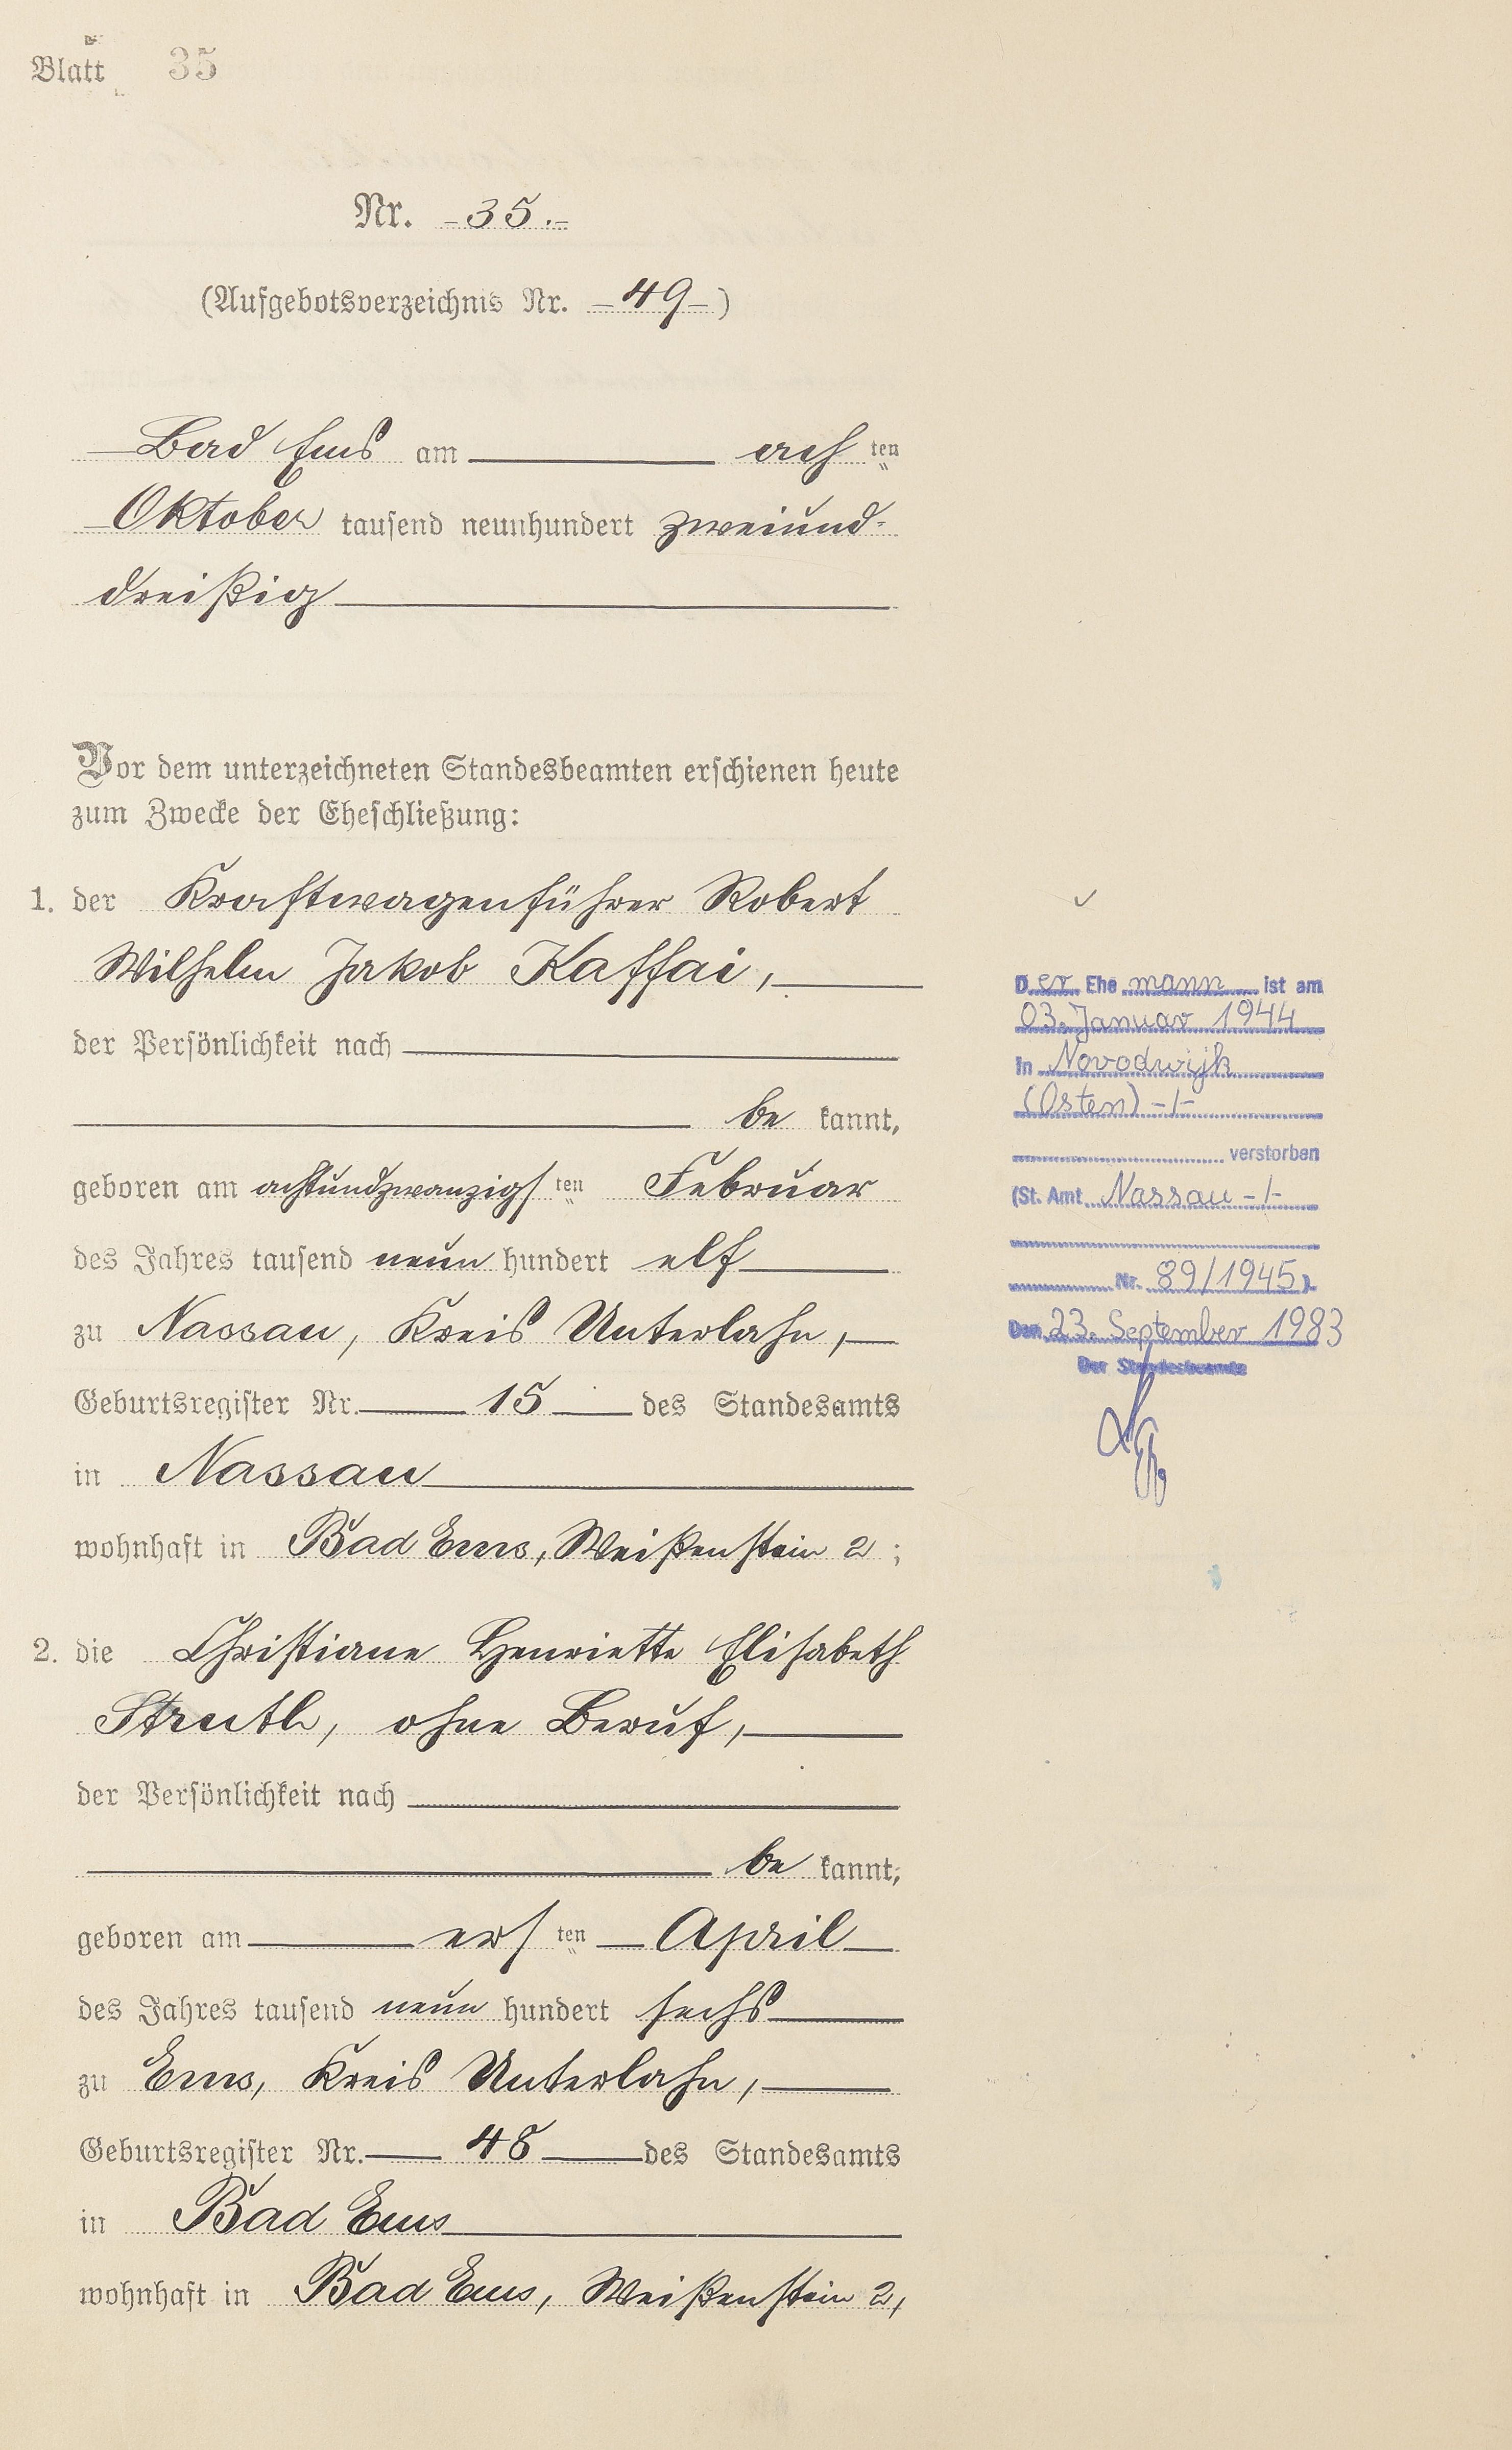 Blatt 35
Nr. -35.-
(Aufgebotsverzeichnis Nr. -49-)
Bad Ems am ach ten
Oktober tausend neunhundert zweiund-
dreißig
Vor dem unterzeichneten Standesbeamten erschienen heute
zum Zwecke der Eheschließung:
1. der Kraftwagenführer Robert
Wilhelm Jakob Kaffai,
der Persönlichkeit nach
be kannt,
geboren am achtundzwanzigs ten Februar
des Jahres tausend neun hundert elf
zu Nassau, Kreis Unterlahn,
Geburtsregister Nr. 15 des Standesamts
in Nassau
wohnhaft in Bad Ems, Weißenstein 2 ;
2. die Christiane Henriette Elisabeth
Struth, ohne Beruf,
der Persönlichkeit nach
be kannt,
geboren am ers ten April
des Jahres tausend neun hundert sechs
zu Ems, Kreis Unterlahn,
Geburtsregister Nr. 48 des Standesamts
in Bad Ems
wohnhaft in Bad Ems, Weißenstein 2,
Der Ehe mann ist am
03. Januar 1944
in Novodwijk
(Osten) -/-
verstorben
(St. Amt Nassau -/-
Nr. 89/1945).
Den 23. September 1983
Der Standesbeamte